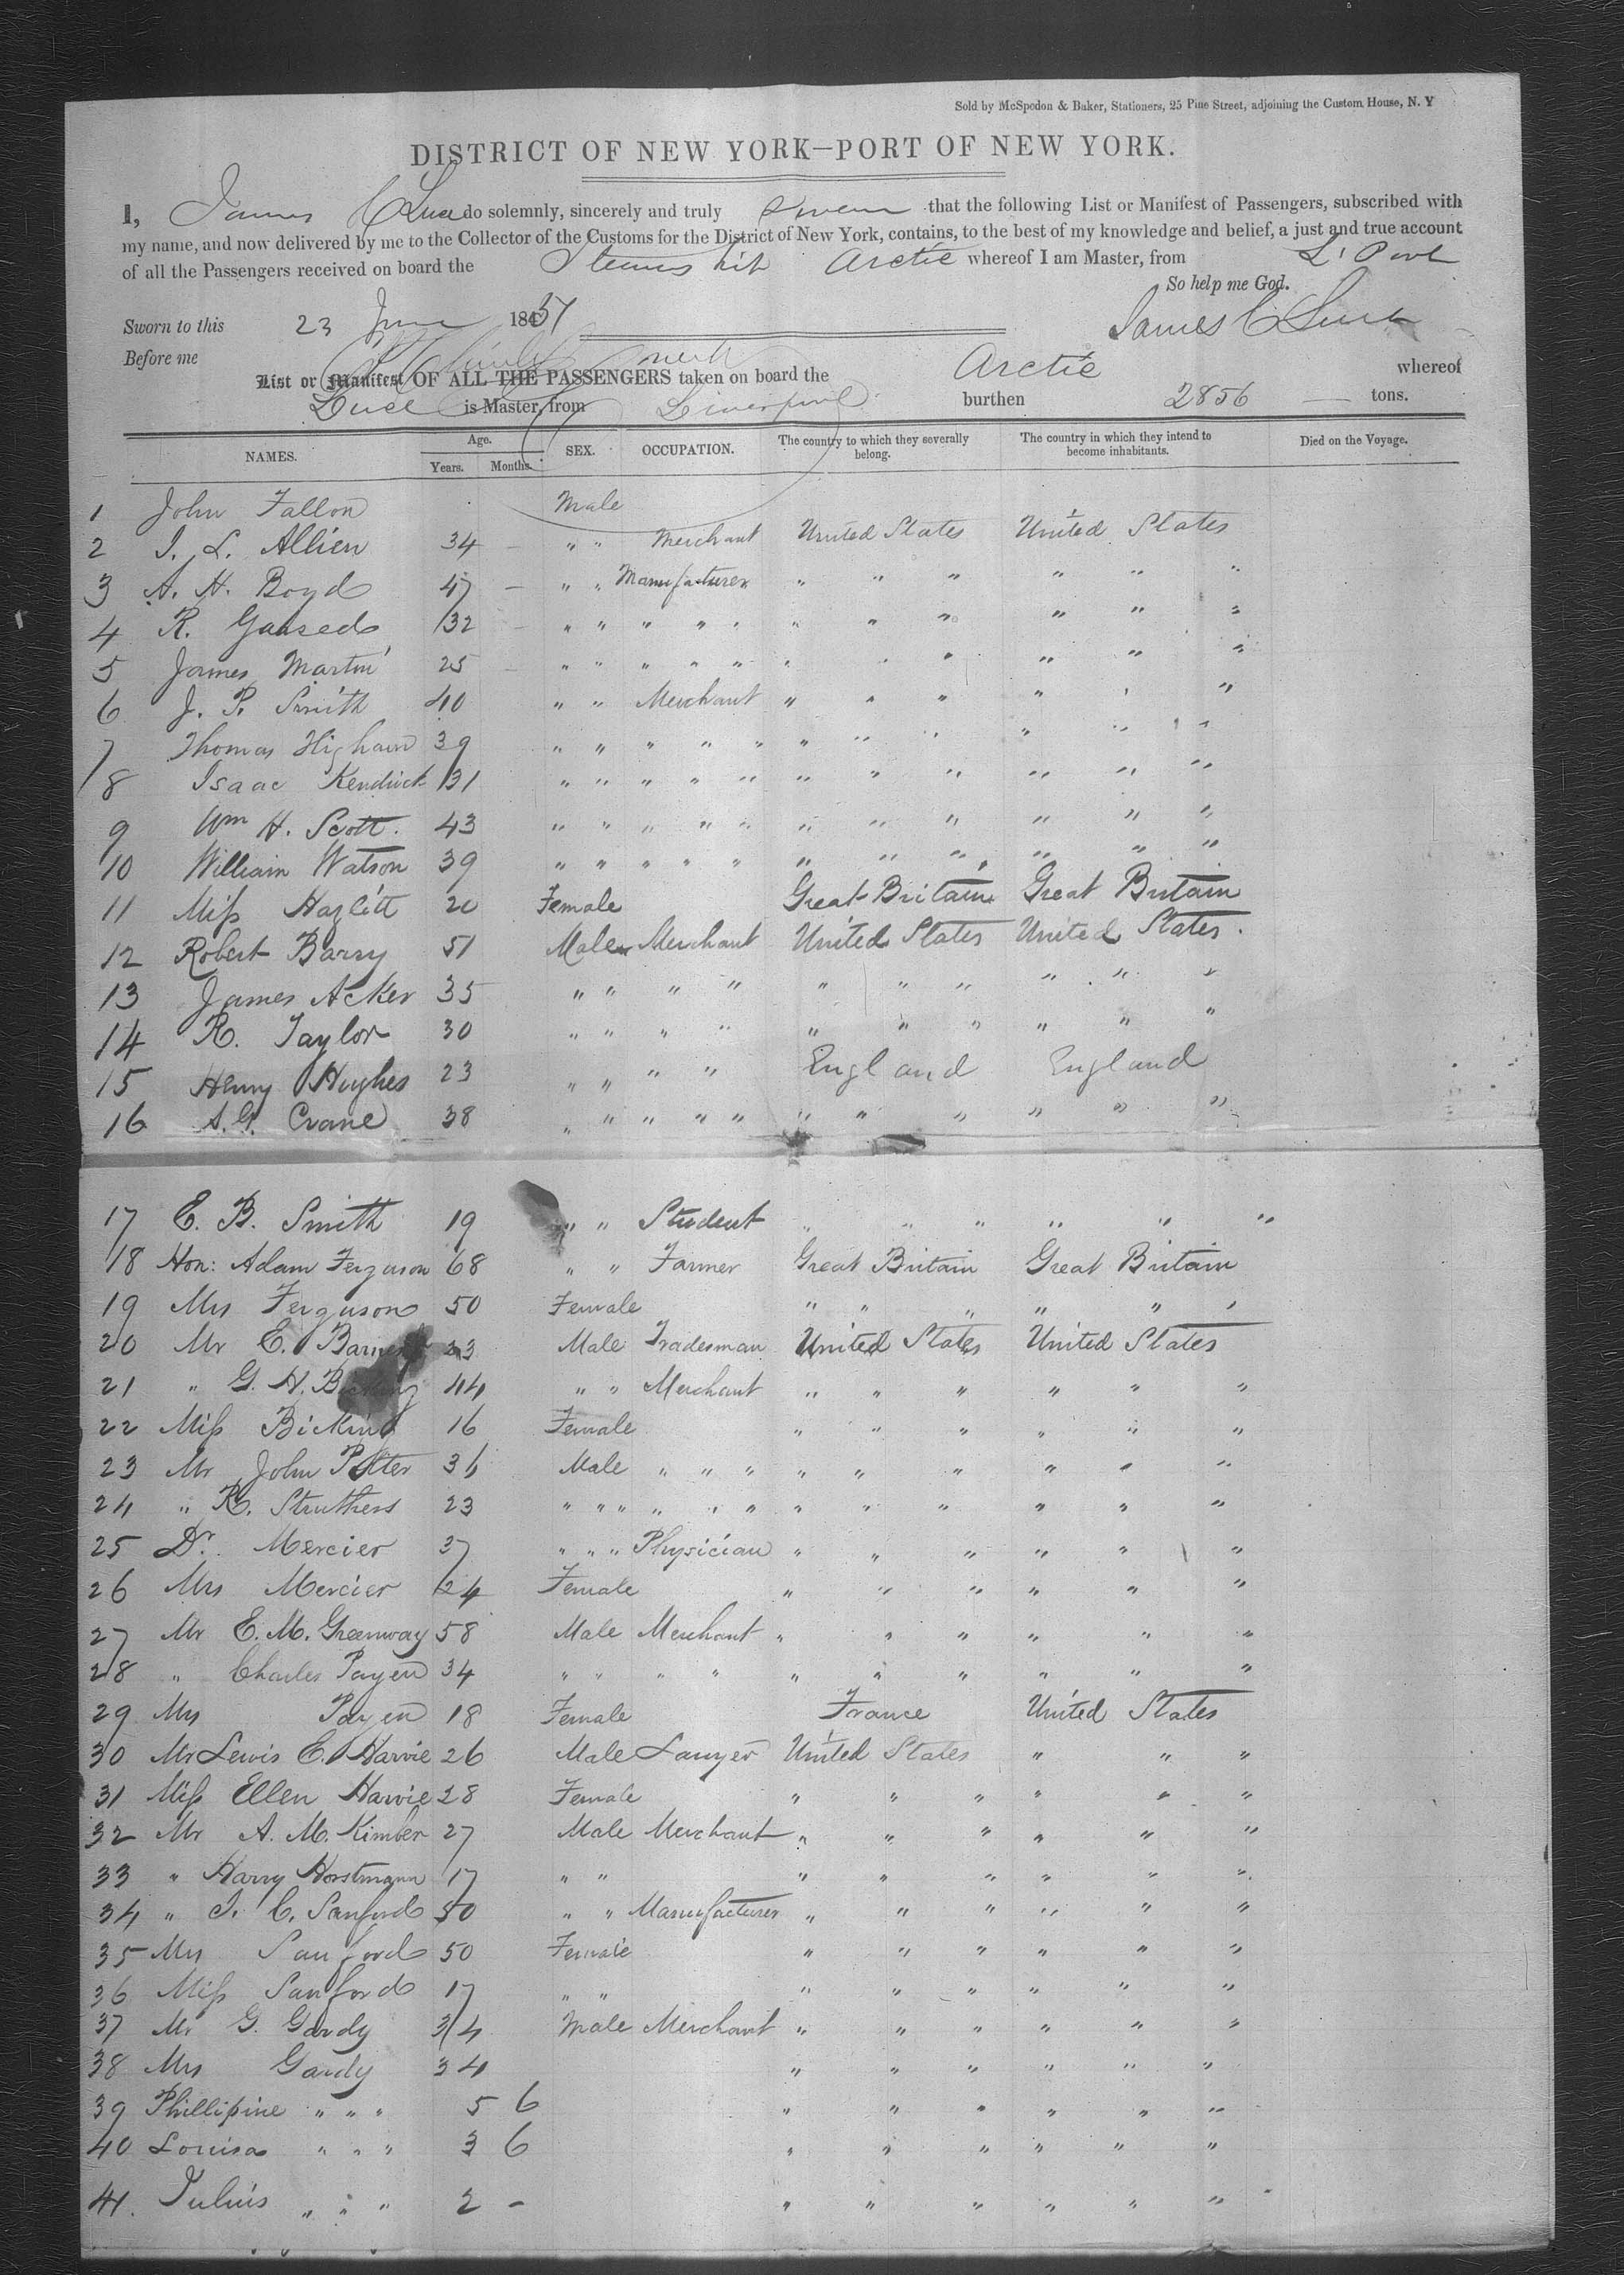 Sold by McSpedon & Baker, Stationers, 25 Pine Street, adjoining the Custom House, N. Y
DISTRICT OF NEW YORK—PORT OF NEW YORK.
I, James C Luce do solemnly, sincerely and truly swear that the following List or Manifest of Passengers, subscribed with
my name, and now delivered by me to the Collector of the Customs for the District of New York, contains, to the best of my knowledge and belief, a just and true account
of all the Passengers received on board the Steamship Arctic whereof I am Master, from L'Pool
So help me God.
Sworn to this 23 June 1851 James C Luce
Before me
List or Manifest OF ALL THE PASSENGERS taken on board the Arctic whereof
Luce is Master, from Liverpool burthen 2856 — tons.
NAMES. Age. Years. Months. SEX. OCCUPATION. The country to which they severally belong. The country in which they intend to become inhabitants. Died on the Voyage.
1 John Fallon Male
2 J. L. Allien 34 – " " Merchant United States United States
3 A. H. Boyd 47 – " " Manufacturer " " " " " "
4 R. 32 – " " " " " " " " " " "
5 James Martin 25 – " " " " " " " " " " "
6 J. P. Smith 40 " " Merchant " " " " " "
7 Thomas Higham 39 " " " " " " " " " " "
8 Isaac Kendrick 31 " " " " " " " " " " "
9 Wm H. Scott. 43 " " " " " " " " " " "
10 William Watson 39 " " " " " " " " " " "
11 Miss Hazlitt 20 Female Great Britain Great Britain
12 Robert Barry 51 Male Merchant United States United States.
13 James Acker 35 " " " " " " " " " "
14 R. Taylor 30 " " " " " " " " " "
15 Henry Hughes 23 " " " " England England
16 A. G. Crane 38 " " " " " " " " " " "
17 E. B. Smith 19 " " Student " " " " " "
18 Hon: Adam Ferguson 68 " " Farmer Great Britain Great Britain
19 Mrs Ferguson 50 Female " " " " " "
20 Mr E. 23 Male Tradesman United States United States
21 " G. H. Bicking 44 " " Merchant " " " " " "
22 Miss Bicking 16 Female " " " " " "
23 Mr John Potter 36 Male " " " " " " " " "
24 " R. Struthers 23 " " " " " " " " " " " "
25 Dr. Mercier 37 " " " Physician " " " " " "
26 Mrs Mercier 24 Female " " " " " "
27 Mr E. M. Greenway 58 Male Merchant " " " " " "
28 " Charles Payen 34 " " " " " " " " " "
29 Mrs Payen 18 Female France United States
30 Mr Lewis E. Harvie 26 Male Lawyer United States " " "
31 Miss Ellen Harvie 28 Female " " " " " "
32 Mr A. M. Kimber 27 Male Merchant " " " " " "
33 " Harry Horstmann 17 " " " " " " " "
34 " J. C. Sanford 50 " " Manufacturer " " " " " "
35 Mrs Sanford 50 Female " " " " " "
36 Miss Sanford 17 " " " " " " " "
37 Mr G. Gardy 34 Male Merchant " " " " " "
38 Mrs Gardy 34 " " " " " "
39 Phillipine " " " 5 6 " " " " " "
40 Louisa " " " 3 6 " " " " " "
41. Julius " " " 2 – " " " " " "